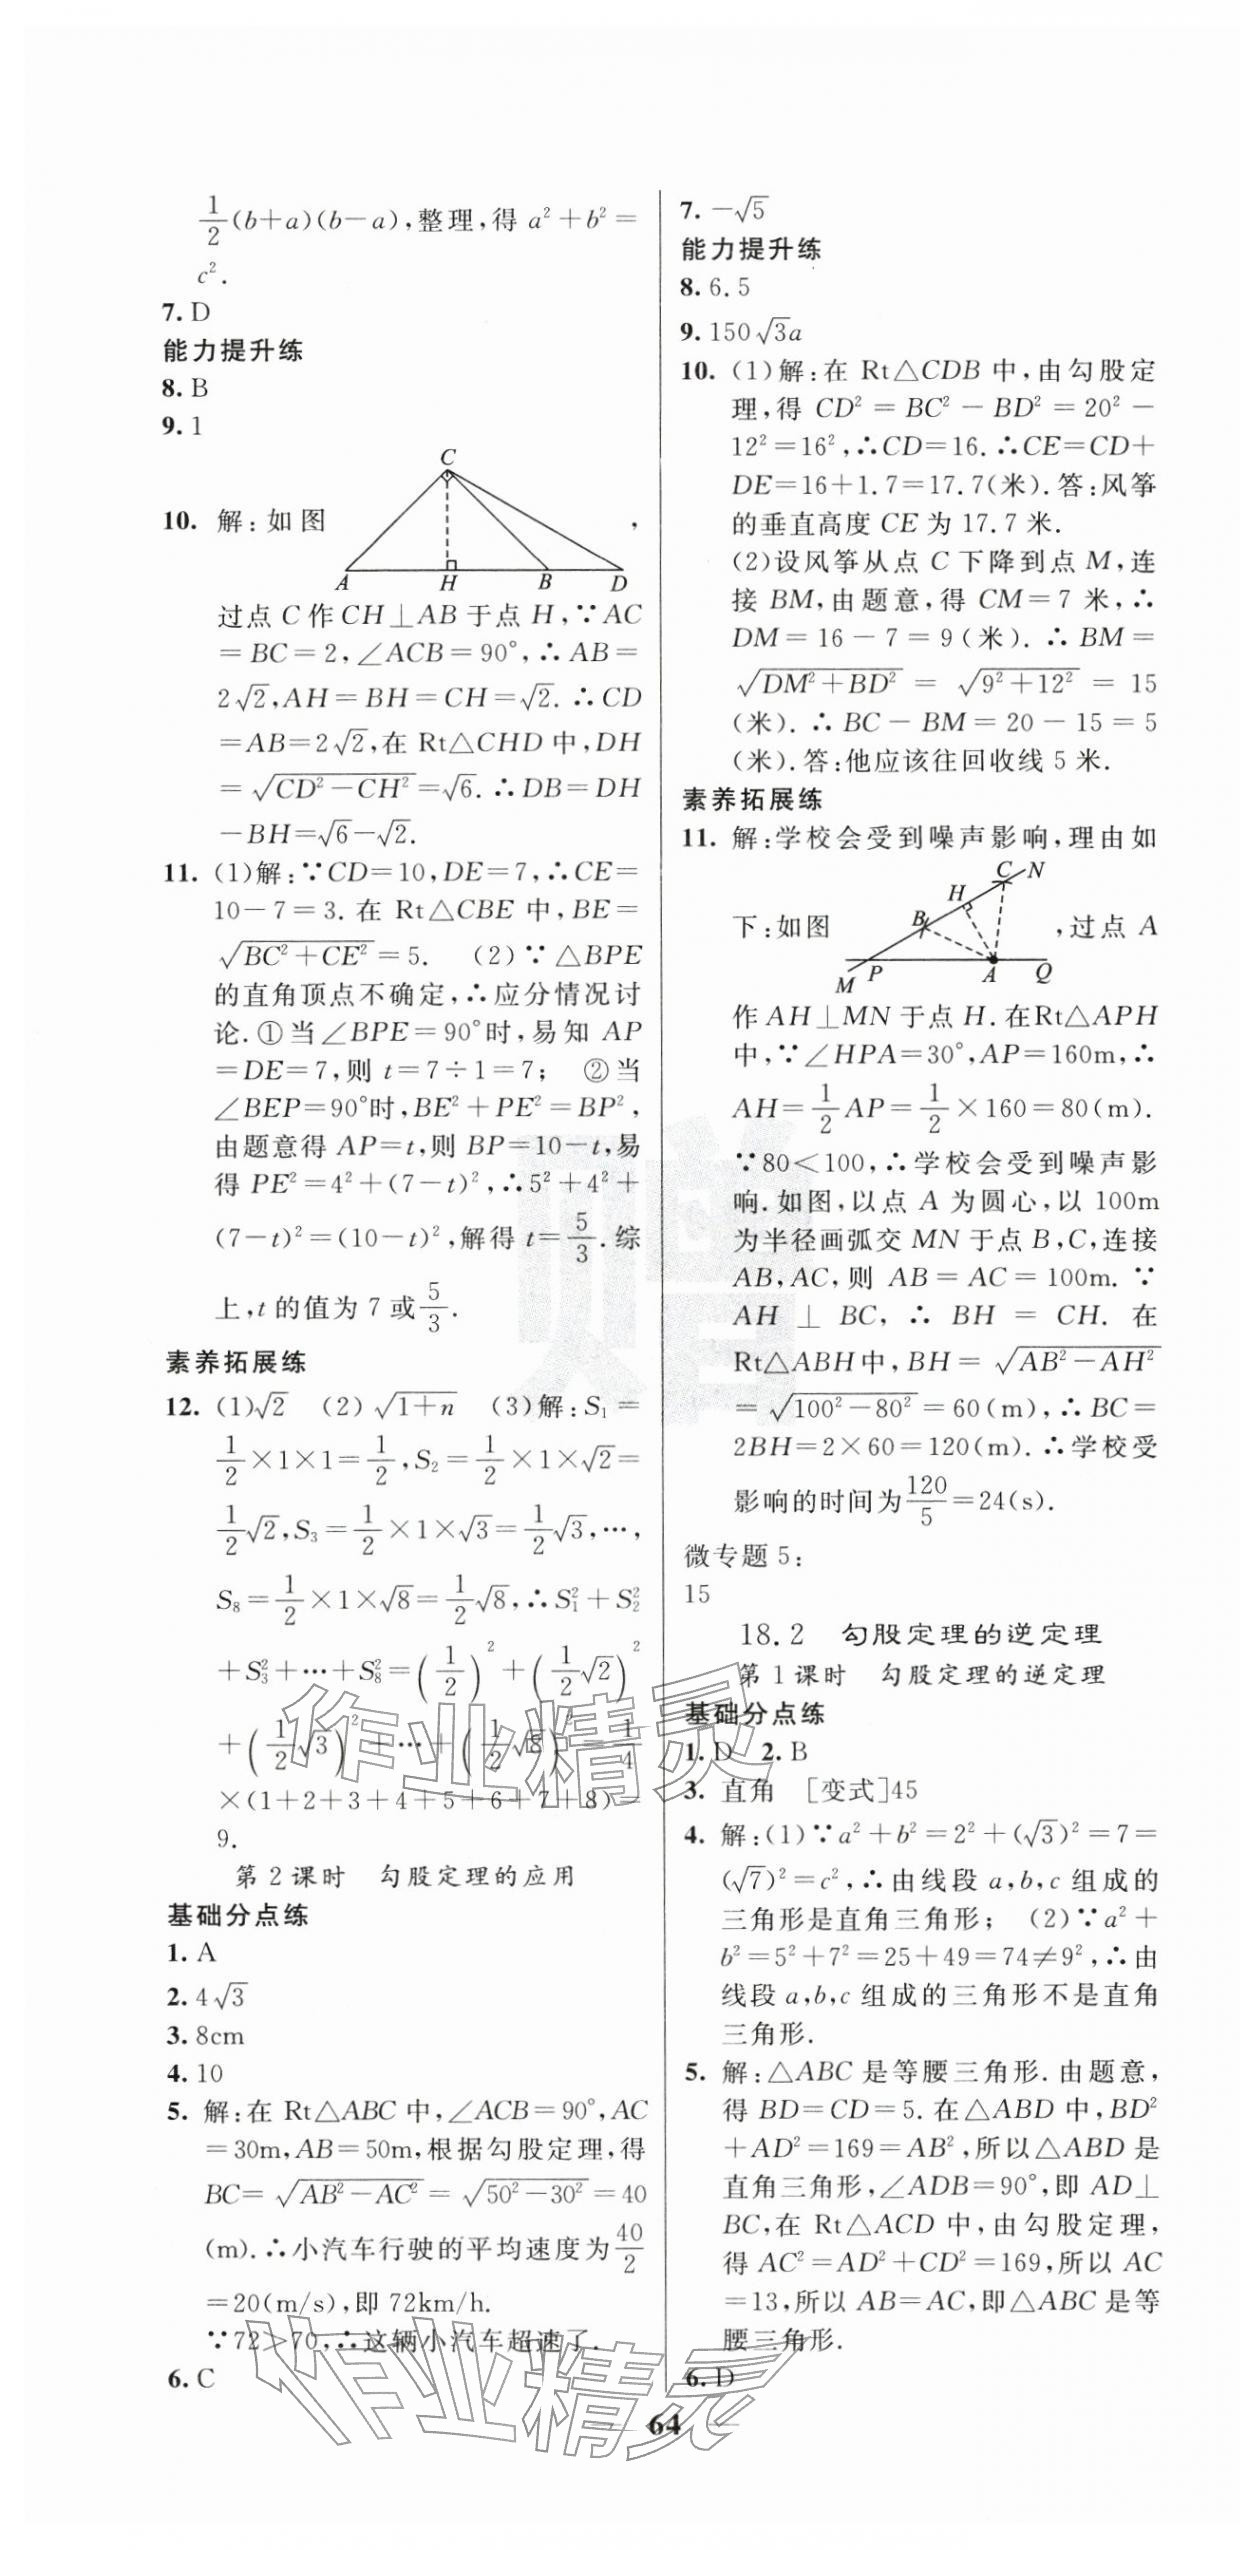 1/2(b+a)(b-a),整理,得 a²+b²=
c².
7. D
能力提升练
8. B
9. 1
10. 解:如图
C
A H B D
,
过点 C 作 CH⊥AB 于点 H,∵AC
=BC=2,∠ACB=90°,∴AB=
2√2,AH=BH=CH=√2.∴CD
=AB=2√2,在 Rt△CHD 中,DH
=√(CD²-CH²)=√6.∴DB=DH
-BH=√6-√2.
11. (1)解:∵CD=10,DE=7,∴CE=
10-7=3.在 Rt△CBE 中,BE=
√(BC²+CE²)=5. (2)∵△BPE
的直角顶点不确定,∴应分情况讨
论.①当∠BPE=90°时,易知 AP
=DE=7,则 t=7÷1=7; ②当
∠BEP=90°时,BE²+PE²=BP²,
由题意得 AP=t,则 BP=10-t,易
得 PE²=4²+(7-t)²,∴5²+4²+
(7-t)²=(10-t)²,解得 t=5/3.综
上,t 的值为 7 或5/3.
素养拓展练
12. (1)√2 (2)√(1+n) (3)解:S₁=
1/2×1×1=1/2,S₂=1/2×1×√2=
1/2√2,S₃=1/2×1×√3=1/2√3,…,
S₈=1/2×1×√8=1/2√8,∴S₁²+S₂²
+S₃²+…+S₈²=(1/2)²+(1/2√2)²
+(1/2√3)²+…+(1/2√8)²=1/4
×(1+2+3+4+5+6+7+8)=
9.
第 2 课时 勾股定理的应用
基础分点练
1. A
2. 4√3
3. 8cm
4. 10
5. 解:在 Rt△ABC 中,∠ACB=90°,AC
=30m,AB=50m,根据勾股定理,得
BC=√(AB²-AC²)=√(50²-30²)=40
(m).∴小汽车行驶的平均速度为40/2
=20(m/s),即 72km/h.
∵72>70,∴这辆小汽车超速了.
6. C
7. -√5
能力提升练
8. 6.5
9. 150√3a
10. (1)解:在 Rt△CDB 中,由勾股定
理,得 CD²=BC²-BD²=20²-
12²=16²,∴CD=16.∴CE=CD+
DE=16+1.7=17.7(米).答:风筝
的垂直高度 CE 为 17.7 米.
(2)设风筝从点 C 下降到点 M,连
接 BM,由题意,得 CM=7 米,∴
DM=16-7=9(米).∴BM=
√(DM²+BD²)=√(9²+12²)=15
(米).∴BC-BM=20-15=5
(米).答:他应该往回收线 5 米.
素养拓展练
11. 解:学校会受到噪声影响,理由如
C N
H
B
下:如图
,过点 A
M P A Q
作 AH⊥MN 于点 H.在Rt△APH
中,∵∠HPA=30°,AP=160m,∴
AH=1/2AP=1/2×160=80(m).
∵80<100,∴学校会受到噪声影
响.如图,以点 A 为圆心,以 100m
为半径画弧交 MN 于点 B,C,连接
AB,AC,则 AB=AC=100m.∵
AH⊥BC,∴BH=CH.在
Rt△ABH中,BH=√(AB²-AH²)
=√(100²-80²)=60(m),∴BC=
2BH=2×60=120(m).∴学校受
影响的时间为120/5=24(s).
微专题 5:
15
18.2 勾股定理的逆定理
第 1 课时 勾股定理的逆定理
基础分点练
1. D 2. B
3. 直角 [变式]45
4. 解:(1)∵a²+b²=2²+(√3)²=7=
(√7)²=c²,∴由线段 a,b,c 组成的
三角形是直角三角形; (2)∵a²+
b²=5²+7²=25+49=74≠9²,∴由
线段 a,b,c 组成的三角形不是直角
三角形.
5. 解:△ABC 是等腰三角形.由题意,
得 BD=CD=5.在△ABD 中,BD²
+AD²=169=AB²,所以△ABD 是
直角三角形,∠ADB=90°,即 AD⊥
BC,在 Rt△ACD 中,由勾股定理,
得 AC²=AD²+CD²=169,所以 AC
=13,所以 AB=AC,即△ABC 是等
腰三角形.
6. D
64
赠
作业精灵
作业精灵